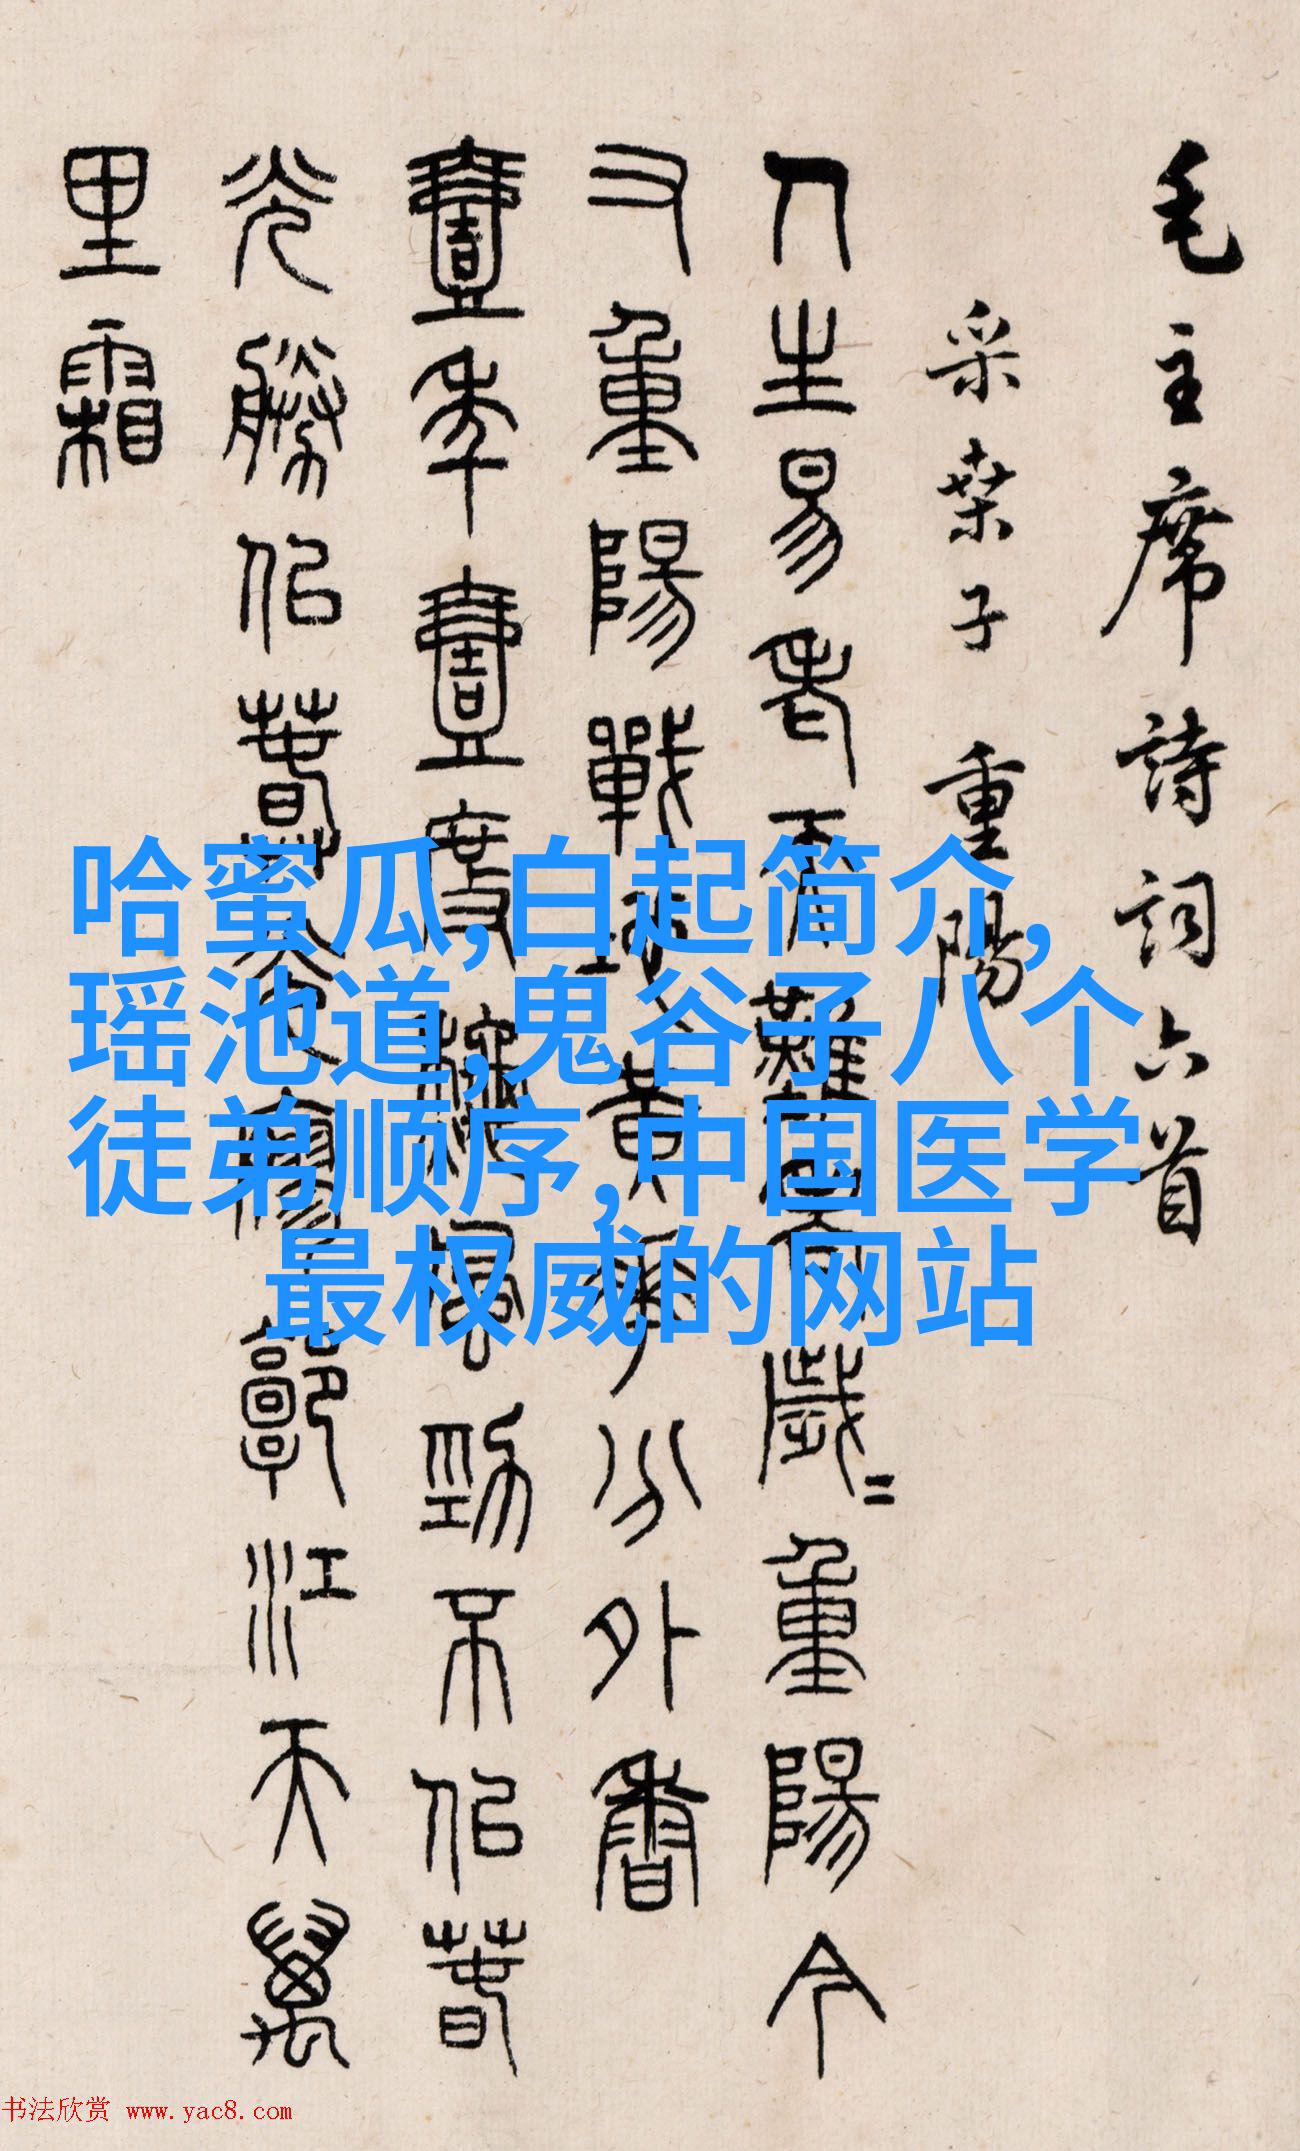 毛主席詩詞六首
采桑子 重陽
人生易老天難老歲〻重陽今
又重陽戰地黃花分外香
壹年壹度秋風勁不似春
光勝似春光寥廓江天萬
里霜
哈蜜瓜,白起简介,
瑶池道,鬼谷子八个
徒弟顺序,中国医学
最权威的网站
书法欣赏 www.yac8.com